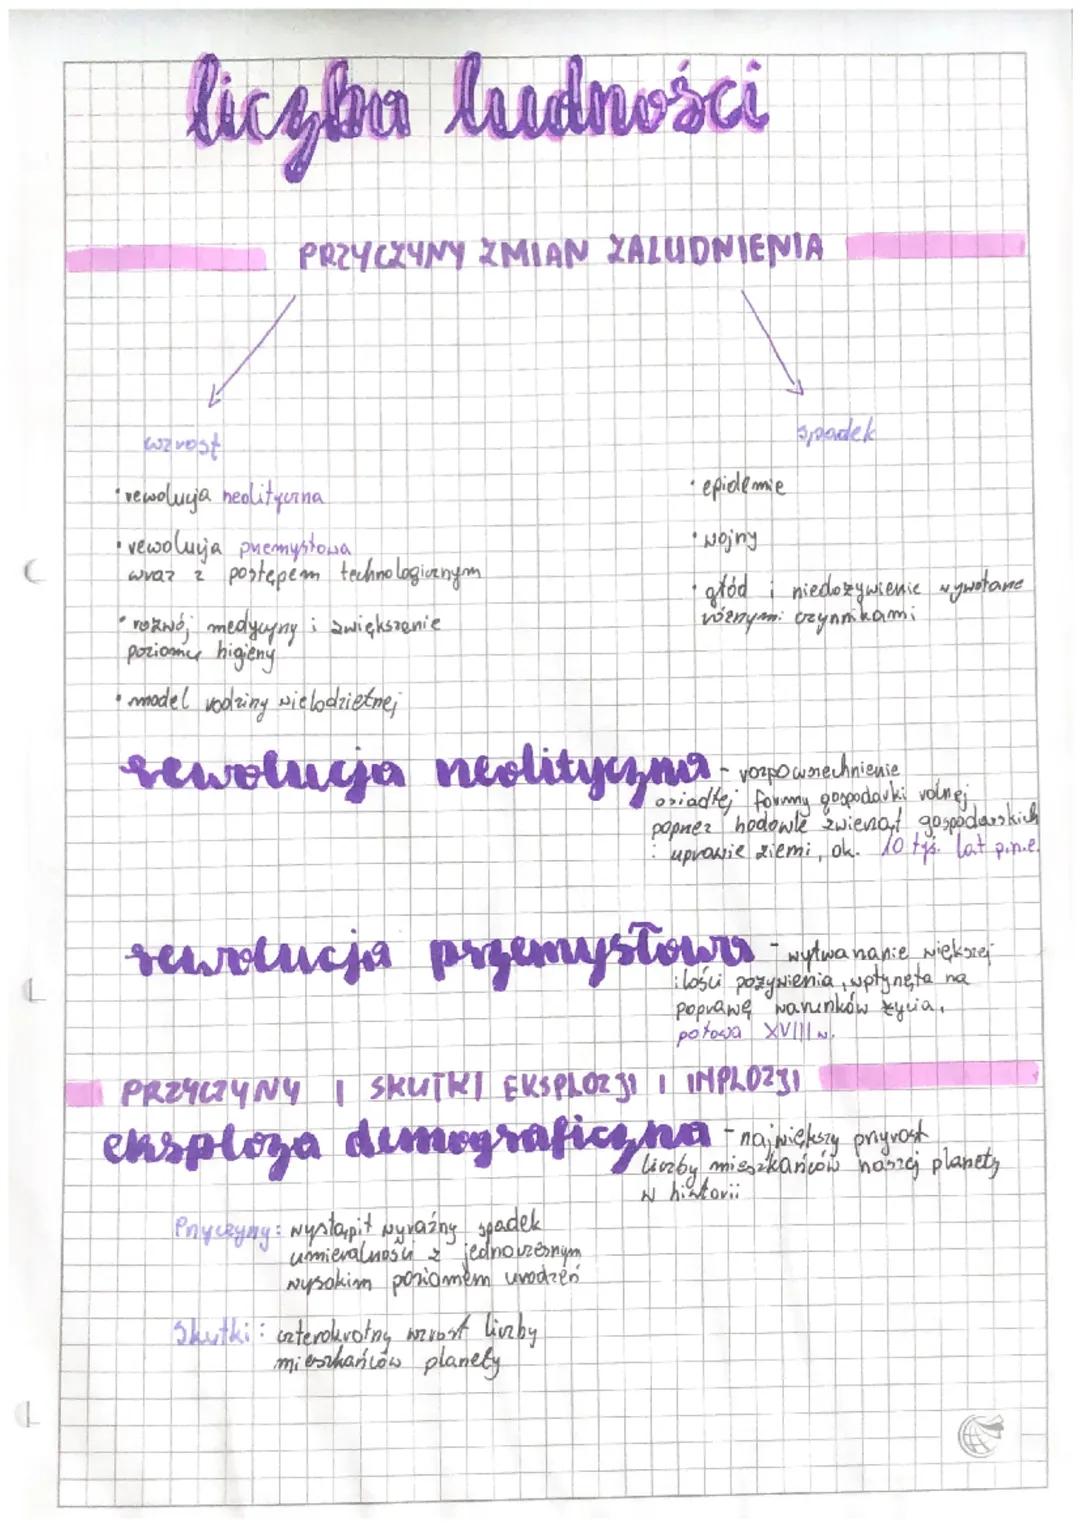 liczba ludności
PRZYCZYNY ZMIAN ZALUDNIENIA
wzrost
• rewolucja neolityczna
• rewolucja przemysłowa
wraz z postępem technologicznym
• rozwój medycyny i zwiększenie
poziomu higieny
• model rodziny wielodzietnej
spadek
• epidemie
• wojny
• głód i niedożywienie wywołane
różnymi czynnikami
rewolucja neolityczna - rozpowszechnienie
osiadłej formy gospodarki rolnej
poprzez hodowle zwierząt gospodarskich
i uprawie ziemi, ok. 10 tyś. lat p.n.e.
rewolucja przemysłowa - wytwarzanie większej
ilości pożywienia, wpłynęła na
poprawę warunków życia,
połowa XVIII w.
PRZYCZYNY I SKUTKI EKSPLOZJI I IMPLOZJI
eksploza demograficzna - największy przyrost
liczby mieszkańców naszej planety
w historii
Przyczyny: wystąpił wyraźny spadek
umieralności z jednoczesnym
wysokim poziomem urodzeń
Skutki: czterokrotny wzrost liczby
mieszkańców planety